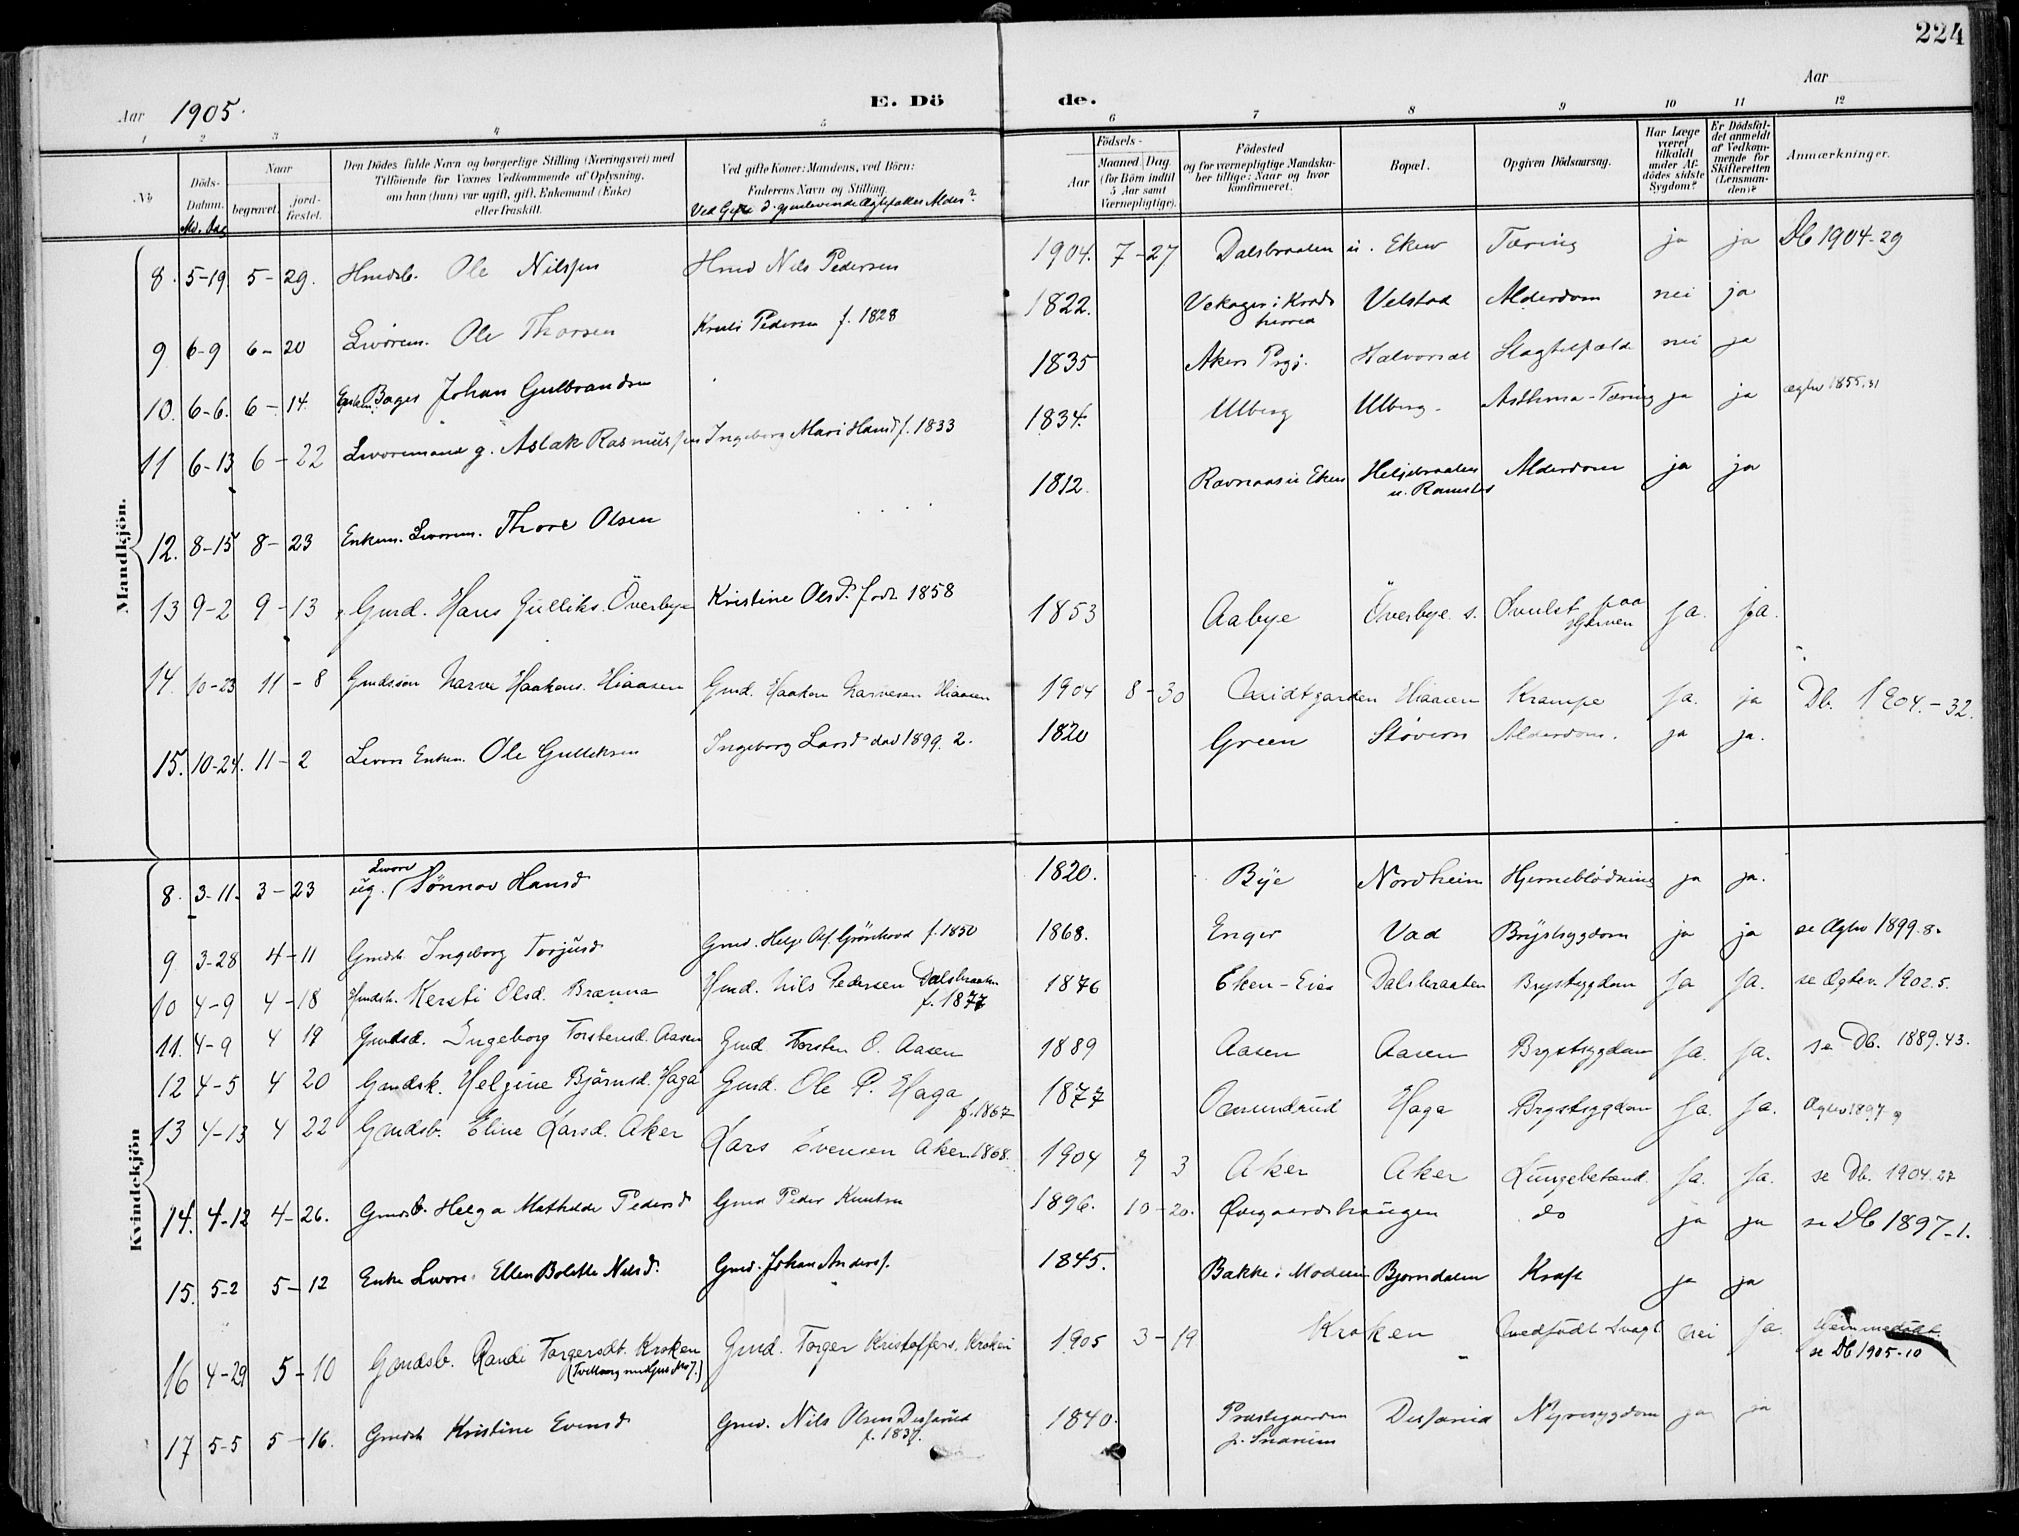 224
Aar 1905.
E. Döde.
Aar
1 2 3 4 5 6 7 8 9 10 11 12
No
Döds-Datum.
Md. Dag
Naar
begravet.
jord-fæstet.
Den Dödes fulde Navn og borgerlige Stilling (Næringsvei) med
Tilföiende for Voxnes Vedkommende af Oplysning,
om han (hun) var ugift, gift, Enkemand (Enke)
eller fraskilt.
Ved gifte Koner: Mandens, ved Börn:
Faderens Navn og Stilling.
Ved Gifte d. gjenlevende Ægtefælles Alder?
Födsels-
Aar
Maaned Dag
(for Börn indtil
5 Aar samt
Værnepligtige).
Födested
og for værnepligtige Mandska-
ber tillige: Naar og hvor
konfirmeret.
Bopæl.
Opgiven Dödsaarsag.
Har Læge
været
tilkaldt
under Af-
dödes sidste
Sygdom?
Er Dödsfal-
det anmeldt
af Vedkom-
mende for
Skifteretten
(Lensman-
den)?
Anmærkninger.
Mandkjön.
8. 5-19 5-29. Hmdsb. Ole Nilssen Hmd Nils Pedersen 1904. 7-27 Dalsbraaten u. Eken Tæring ja ja Db 1904-29
9 6-9 6-20 Livörem. Ole Thorsen Kristi Pedersen f. 1828 1822. i Krødsherred Velstad Alderdom nei ja
10. 6-6. 6-14. Enkem. Bager Johan Gulbrandsen 1835 Akers Prgj. Halvorsæt Slagtilfælde nei ja
11 6-13 6-22 Livöremand g. Aslak Rasmussen Ingeborg Mari Hansd f. 1833 1834. Ulberg Ulberg Asthma-Tæring ja ja ægtev 1855.31
12. 8-15 8-23 Enkem. Livörem. Thore Olsen 1812. Ravnaas u Eken Heljebraaten u. Ramstad Alderdom ja ja
13 9-2 9-13 Gmd. Hans Gulliks. Överbye Kristine Olsd. født 1858 1853 Aabye Överbye s. Svulst paa Hjernen ja. ja.
14. 10-23 11-8 Gmdssön Narve Haakons. Hiaasen Gmd. Haakon Narvesen Hiaasen 1904 8-30 Midtgarden Hiaasen Krampe ja. ja Db. 1904.-32.
15. 10-24. 11-2 Livörs Enkem. Ole Gulliksen Ingeborg Larsd død 1899. 2. 1820 Green Støvern Alderdom. ja ja.
Kvindekjön
8. 3-11. 3-23 ug. Livörs Sönnov Hansd 1820. Bye Nordheim Hjerneblödning ja ja.
9 3-28 4-11 Gmdsk. Ingeborg Torjusd Gmd. Helge Olss. Grönhovd f. 1850 1868. Enger Vad Brystsygdom ja ja se Ægtev 1899.8.
10 4-9 4-18 Hmdsk. Kersti Olsd. Brænna Hmd. Nils Pedersen Dalsbraaten f. 1877 1876 Eken-Eie Dalsbraaten Brystsygdom ja ja. se Ægtev. 1902.5.
11. 4-9 4 19 Gmdsd. Ingeborg Torstensd. Aasen Gmd Torsten O. Aasen 1889 Aasen Aasen Brystsygdom ja. ja. se Db. 1889.43.
12 4-5 4 20 Gmdsk. Helgine Björnsd. Haga Gmd. Ole P. Haga f. 1867 1877 Omundrud Haga Brystsygdom ja. ja. Ægtev 1897. 9
13 4-13 4 22 Gmdsb. Eline Larsd. Aker Lars Evensen Aker 1868. 1904 9 3 Aker Aker Lungebetænd. ja. ja. se Db. 1904.27
14. 4-12 4-26. Gmdsb. Helga Mathilde Pedersd Gmd Peder Knutsen 1896. 10-20. Øvegaardshaugen do ja ja se Db 1897-1.
15. 5-2 5-12 Enke Livörs. Ellen Bolette Nilsd. Gmd. Johan Anders. 1845. Bakke i Modum Bjørndalen Kræft ja ja
16 4-29 5-10 Gmdsb. Randi Torgersdt. Kroken (Tvilling med Gjms No 7.) Gmd. Torger Kristoffers. Kroken 1905 3-19 Kroken Medfödt Svagh nei ja. Hjemmedöbt se Db 1905-10
17 5-5 5-16. Gmdsk Kristine Evensd Gmd. Nils Olsen Desserud f. 1837. 1840. Præstegaarden p. Snarum Desserud Nyresygdom ja ja